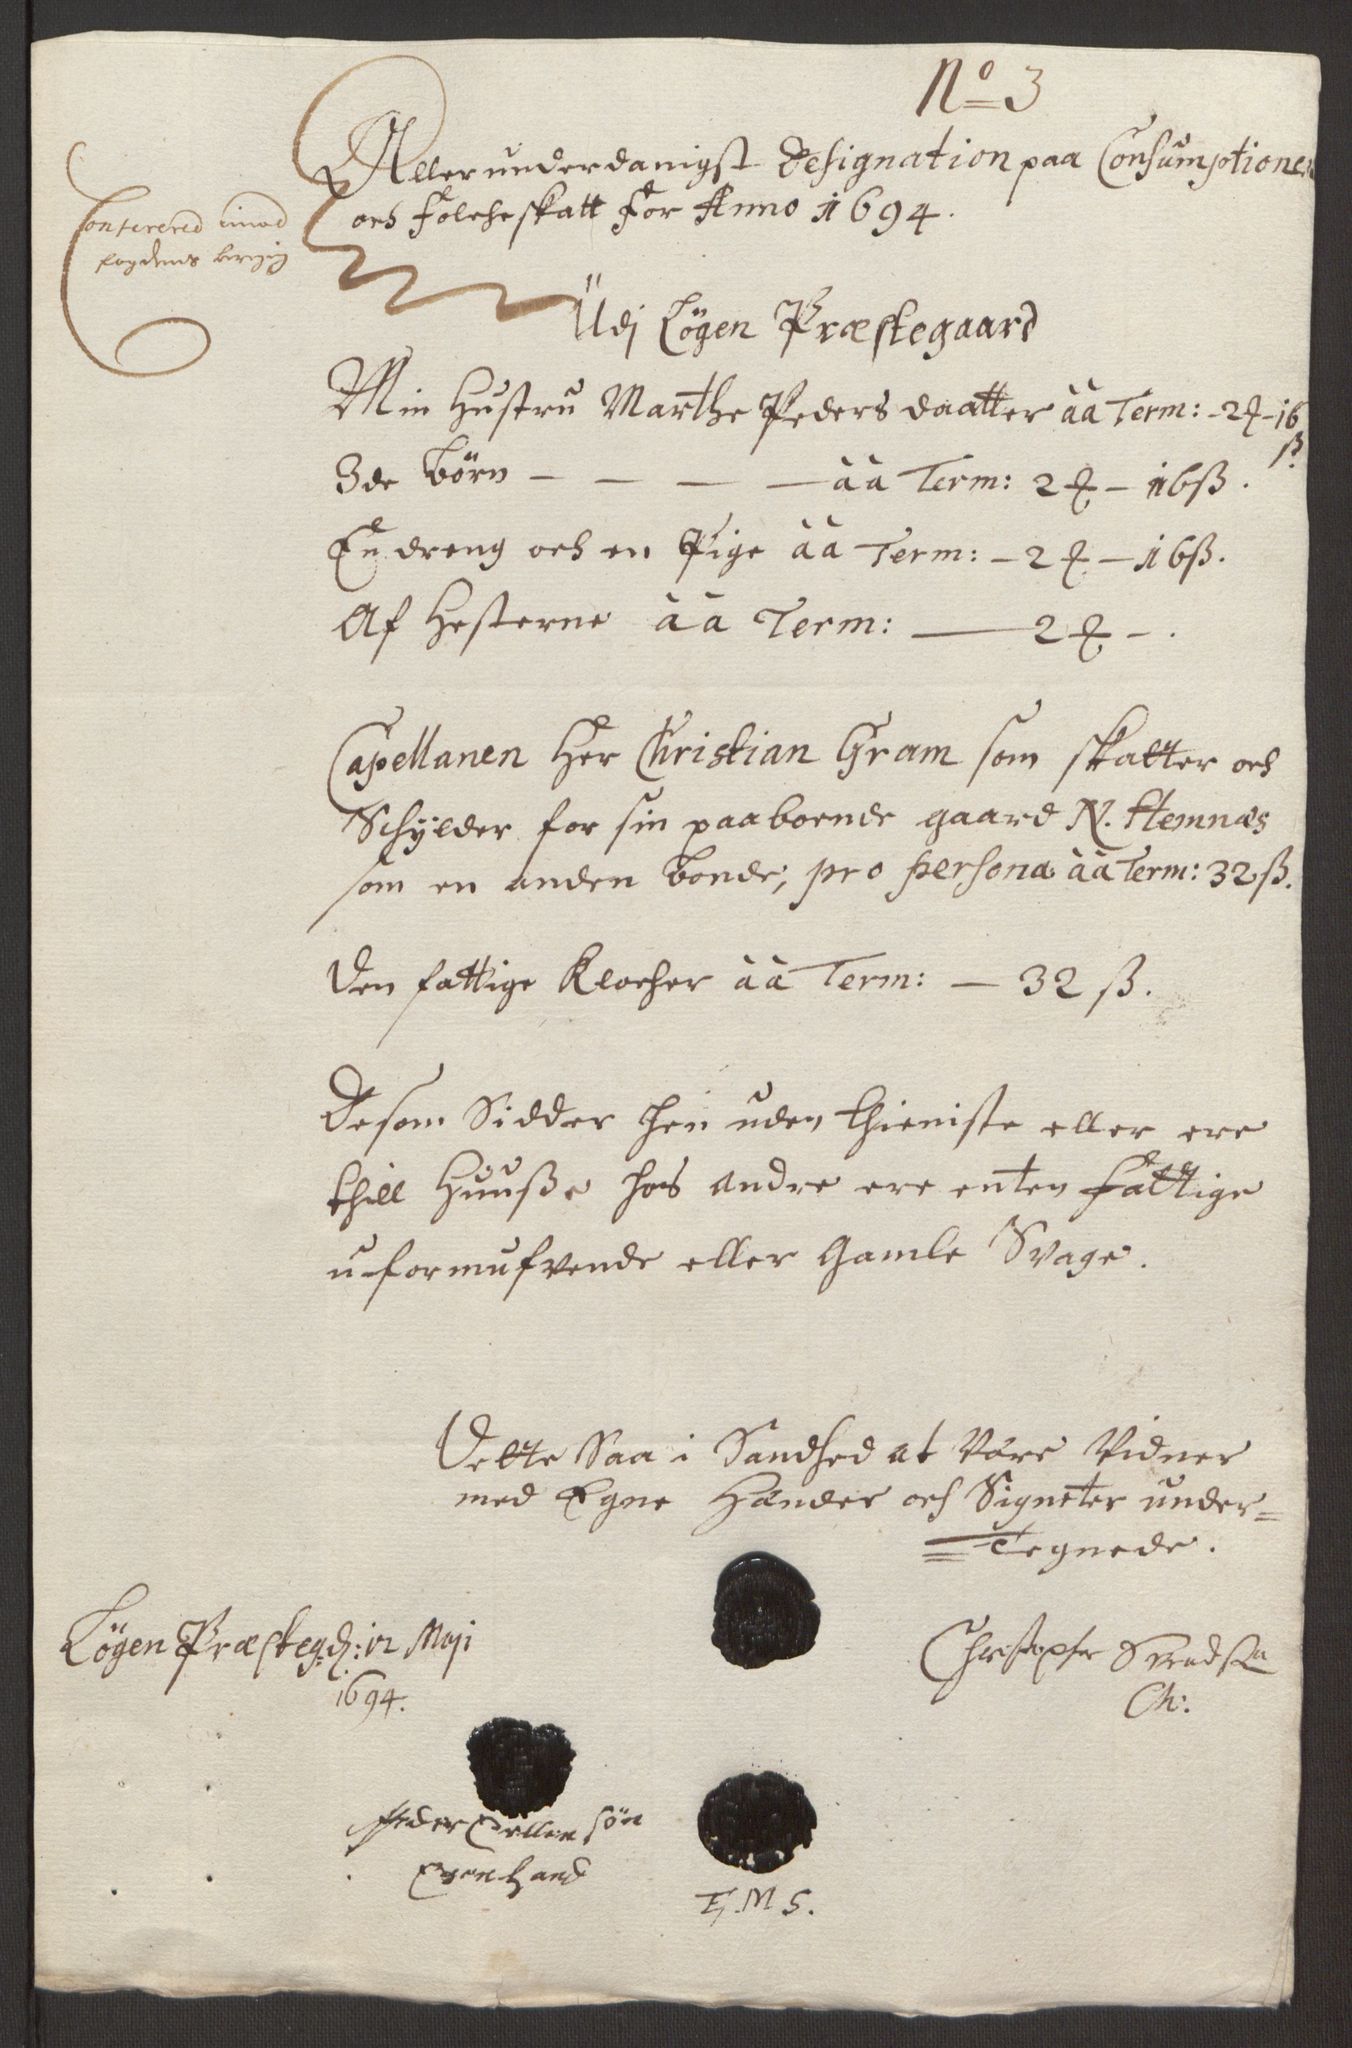 No 3
Allerunderdanigst Designation paa Consumptionen
och Folcheskatt for Anno 1694.
Conferered imod
fogdens
Udj Løgen Præstegaard
Min Hustru Marthe Peders daatter àà Term: - 2 ₰ - 16 ß
3de børn — — — — àà Term: 2 ₰ - 16 ß.
En dreng och en Pige àà Term: - 2 ₰ - 16 ß.
Af Hesterne àà Term: — 2 ₰ - .
Capellanen Her Christian Gram som skatter och
Schylder for sin paaboende gaard N. Hemnæs
som en anden bonde, pro persona àà Term: 32 ß.
Den fattige Klocher àà Term: — 32 ß.
De som Sidder hen uden thieniste eller ere
thill Huuße hos andre ere enten fattige
uformufvende eller Gamle Svage.
Dette Saa i Sandhed at Være Vidner
med Egne Hænder och Signeter under=
=Tegnede.
Løgen Præsteg: d: 12 Maji
1694.
Christopher Svends̄n
Peder Ellensøn
Egen haand
T. M S.